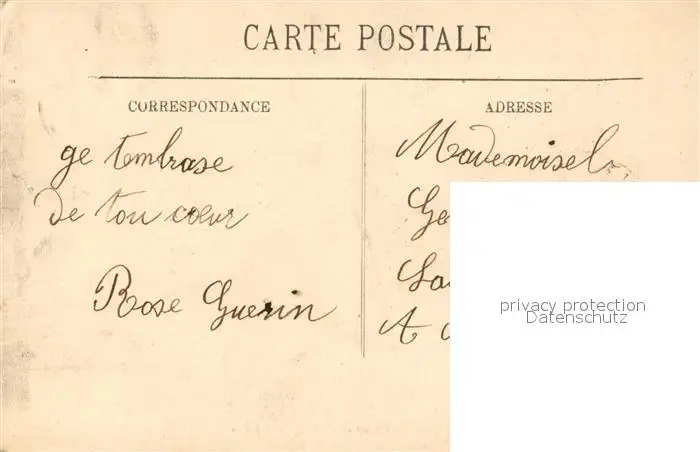 CARTE POSTALE
CORRESPONDANCE
ge tembrase
de tou cœur
Rose Guerin
ADRESSE
Mademoisel
Ge
A
privacy protection
Datenschutz